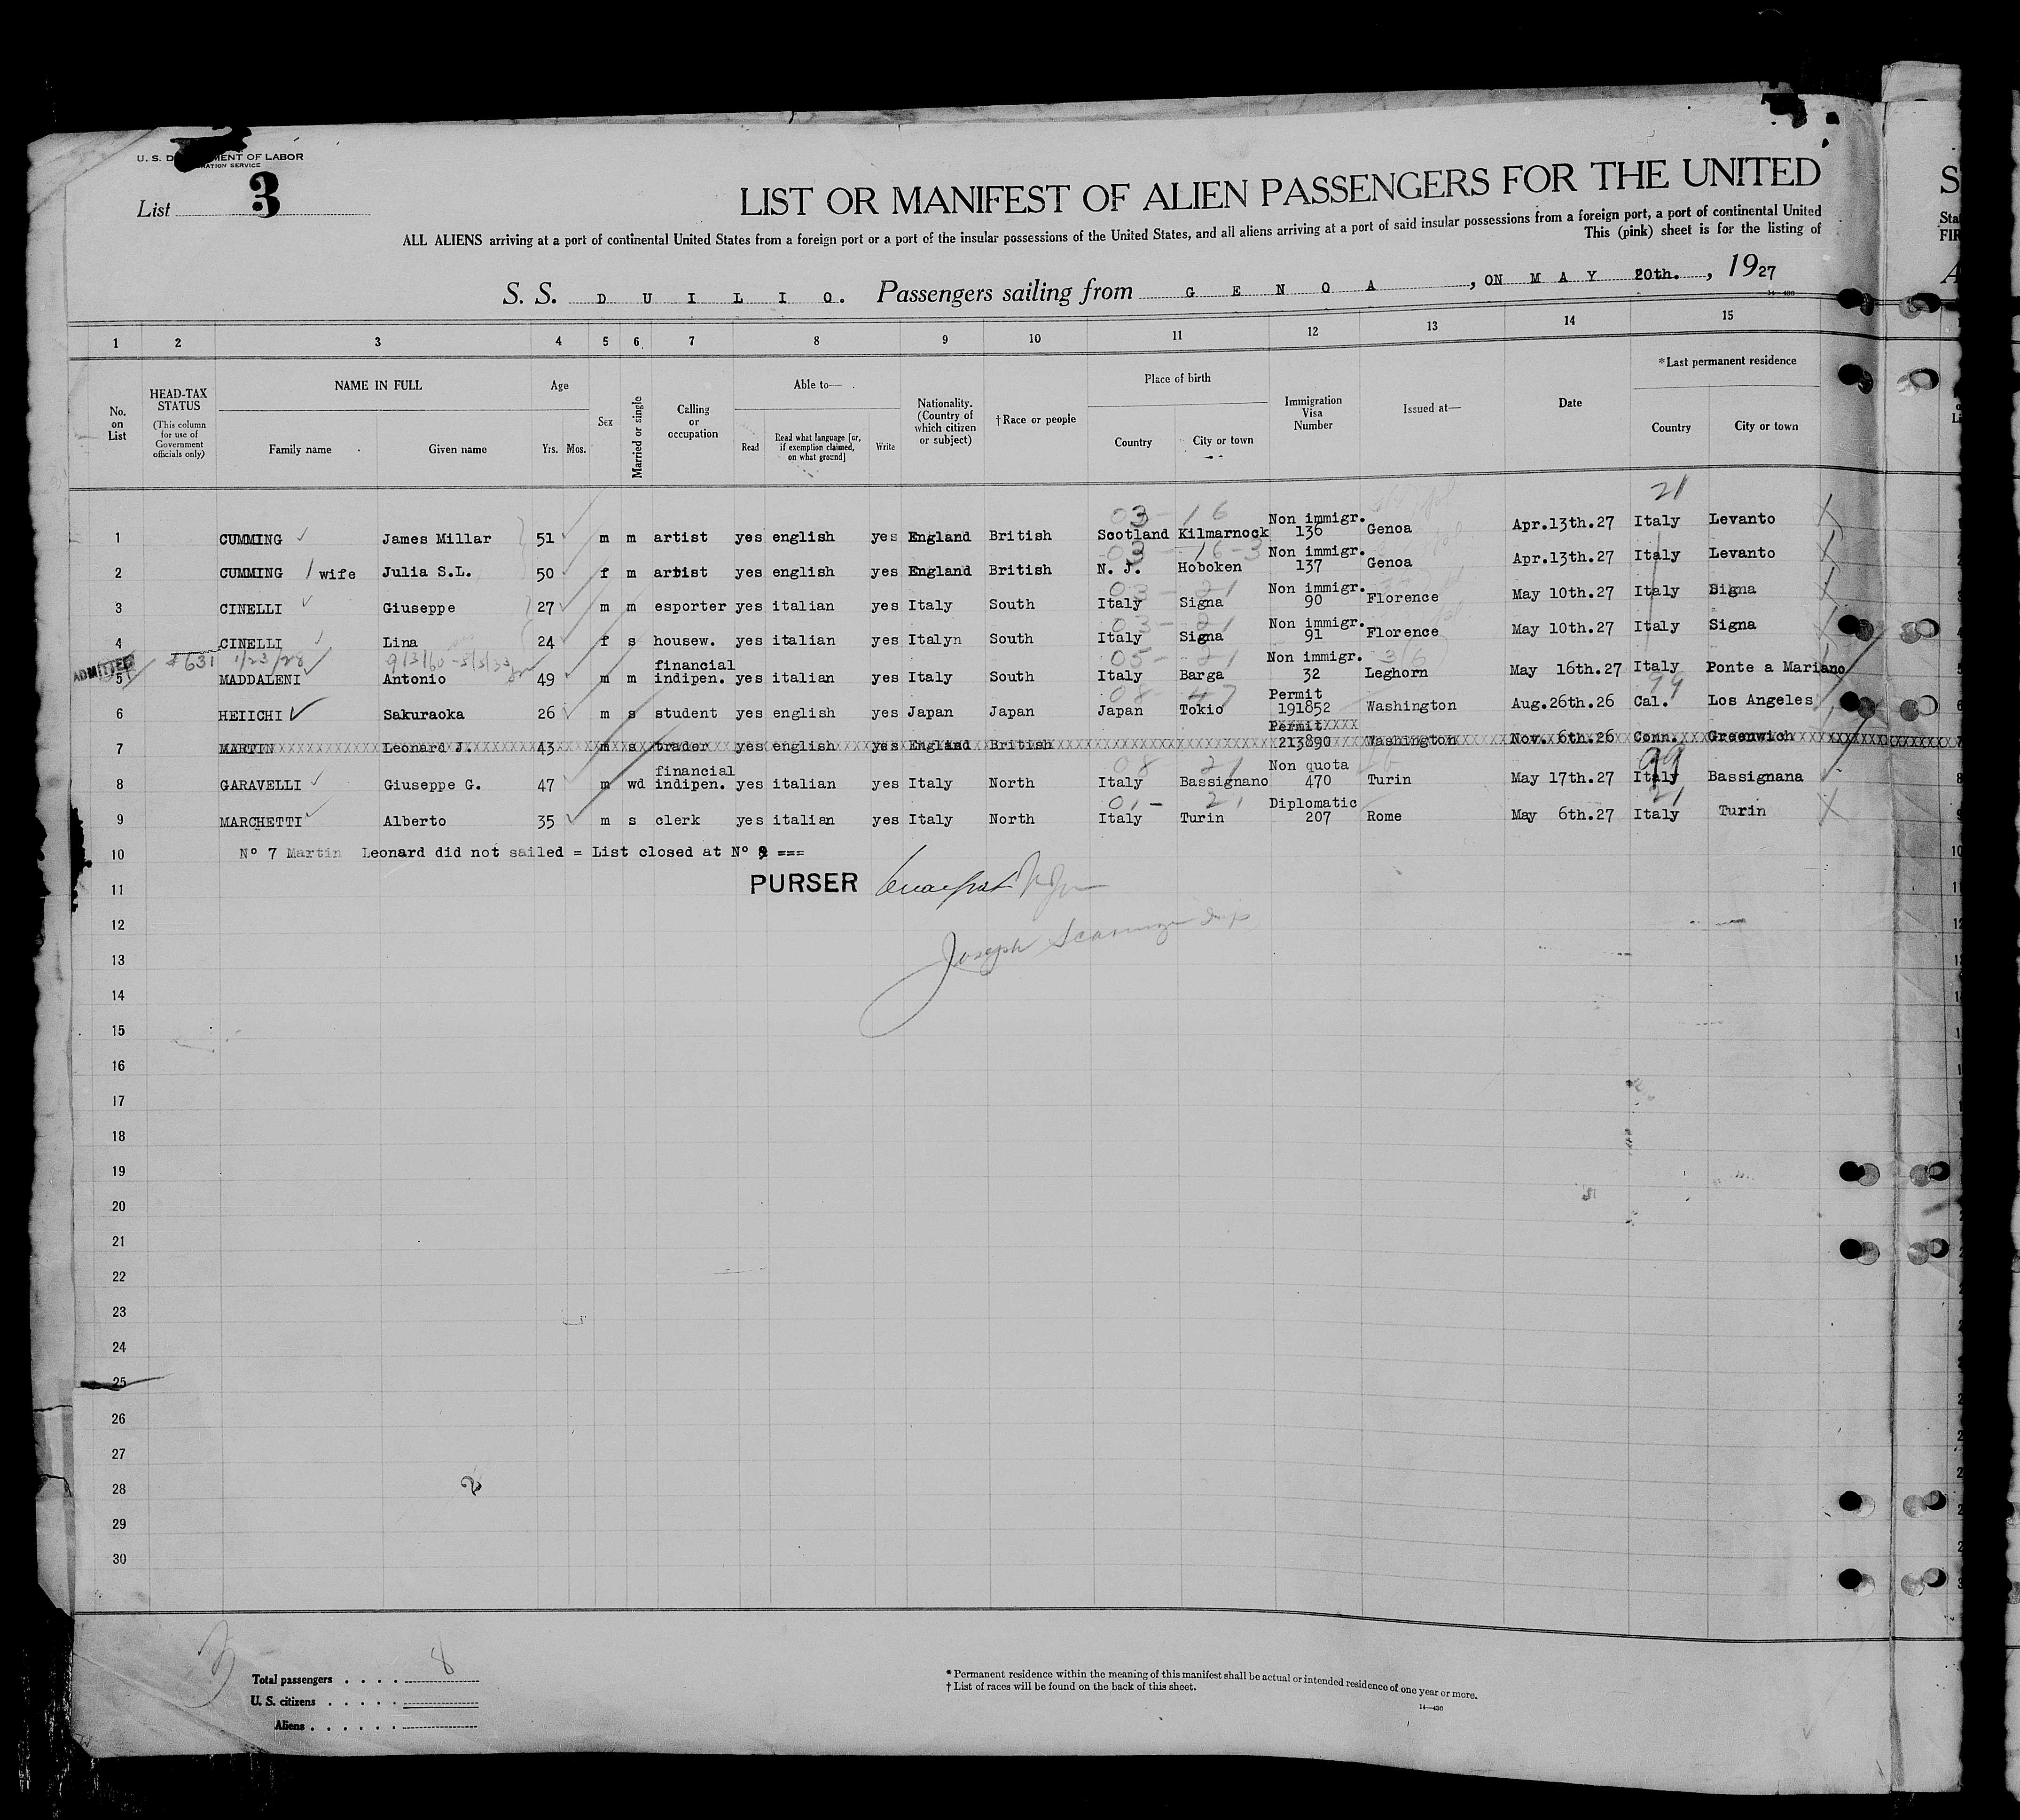 U. S. D MENT OF LABOR
RATION SERVICE
List 3
LIST OR MANIFEST OF ALIEN PASSENGERS FOR THE UNITED
ALL ALIENS arriving at a port of continental United States from a foreign port or a port of the insular possessions of the United States, and all aliens arriving at a port of said insular possessions from a foreign port, a port of continental United
This (pink) sheet is for the listing of
S. S. D U I L I O. Passengers sailing from G E N O A , ON M A Y 20th. , 1927
1 2 3 4 5 6 7 8 9 10 11 12 13 14 15
No. on List
HEAD-TAX STATUS (This column for use of Government officials only)
NAME IN FULL Family name Given name
Age Yrs. Mos.
Sex
Married or single
Calling or occupation
Able to— Read Read what language [or, if exemption claimed, on what ground] Write
Nationality. (Country of which citizen or subject)
†Race or people
Place of birth Country City or town
Immigration Visa Number
Issued at—
Date
*Last permanent residence Country City or town
21
03 - 16
1 CUMMING James Millar 51 m m artist yes english yes England British Scotland Kilmarnock Non immigr. 136 Genoa Apr.13th.27 Italy Levanto
03 - 16-3
2 CUMMING wife Julia S.L. 50 f m artist yes english yes England British N. J. Hoboken Non immigr. 137 Genoa Apr.13th.27 Italy Levanto
03 - 21
3 CINELLI Giuseppe 27 m m esporter yes italian yes Italy South Italy Signa Non immigr. 90 Florence May 10th.27 Italy Signa
03 - 21
4 CINELLI Lina 24 f s housew. yes italian yes Italyn South Italy Signa Non immigr. 91 Florence May 10th.27 Italy Signa
ADMITTED 631 1/23/28
05 - 21
5 MADDALENI Antonio 49 m m financial indipen. yes italian yes Italy South Italy Barga Non immigr. 32 Leghorn May 16th.27 Italy Ponte a Mariano
08 - 47 99
6 HEIICHI Sakuraoka 26 m s student yes english yes Japan Japan Japan Tokio Permit 191852 Washington Aug.26th.26 Cal. Los Angeles
7 MARTIN Leonard J. 43 m s trader yes english yes England British Permit 213890 Washington Nov. 6th.26 Conn. Greenwich
08 - 21 99
8 GARAVELLI Giuseppe G. 47 m wd financial indipen. yes italian yes Italy North Italy Bassignano Non quota 470 Turin May 17th.27 Italy Bassignana
01 - 21 21
9 MARCHETTI Alberto 35 m s clerk yes italian yes Italy North Italy Turin Diplomatic 207 Rome May 6th.27 Italy Turin
10 N° 7 Martin Leonard did not sailed = List closed at N° 9 ===
11 PURSER
12
Joseph
13
14
15
16
17
18
19
20
21
22
23
24
25
26
27
28
29
30
3
Total passengers . . . . 8
U. S. citizens . . . . .
Aliens . . . . . .
* Permanent residence within the meaning of this manifest shall be actual or intended residence of one year or more.
† List of races will be found on the back of this sheet.
14—430